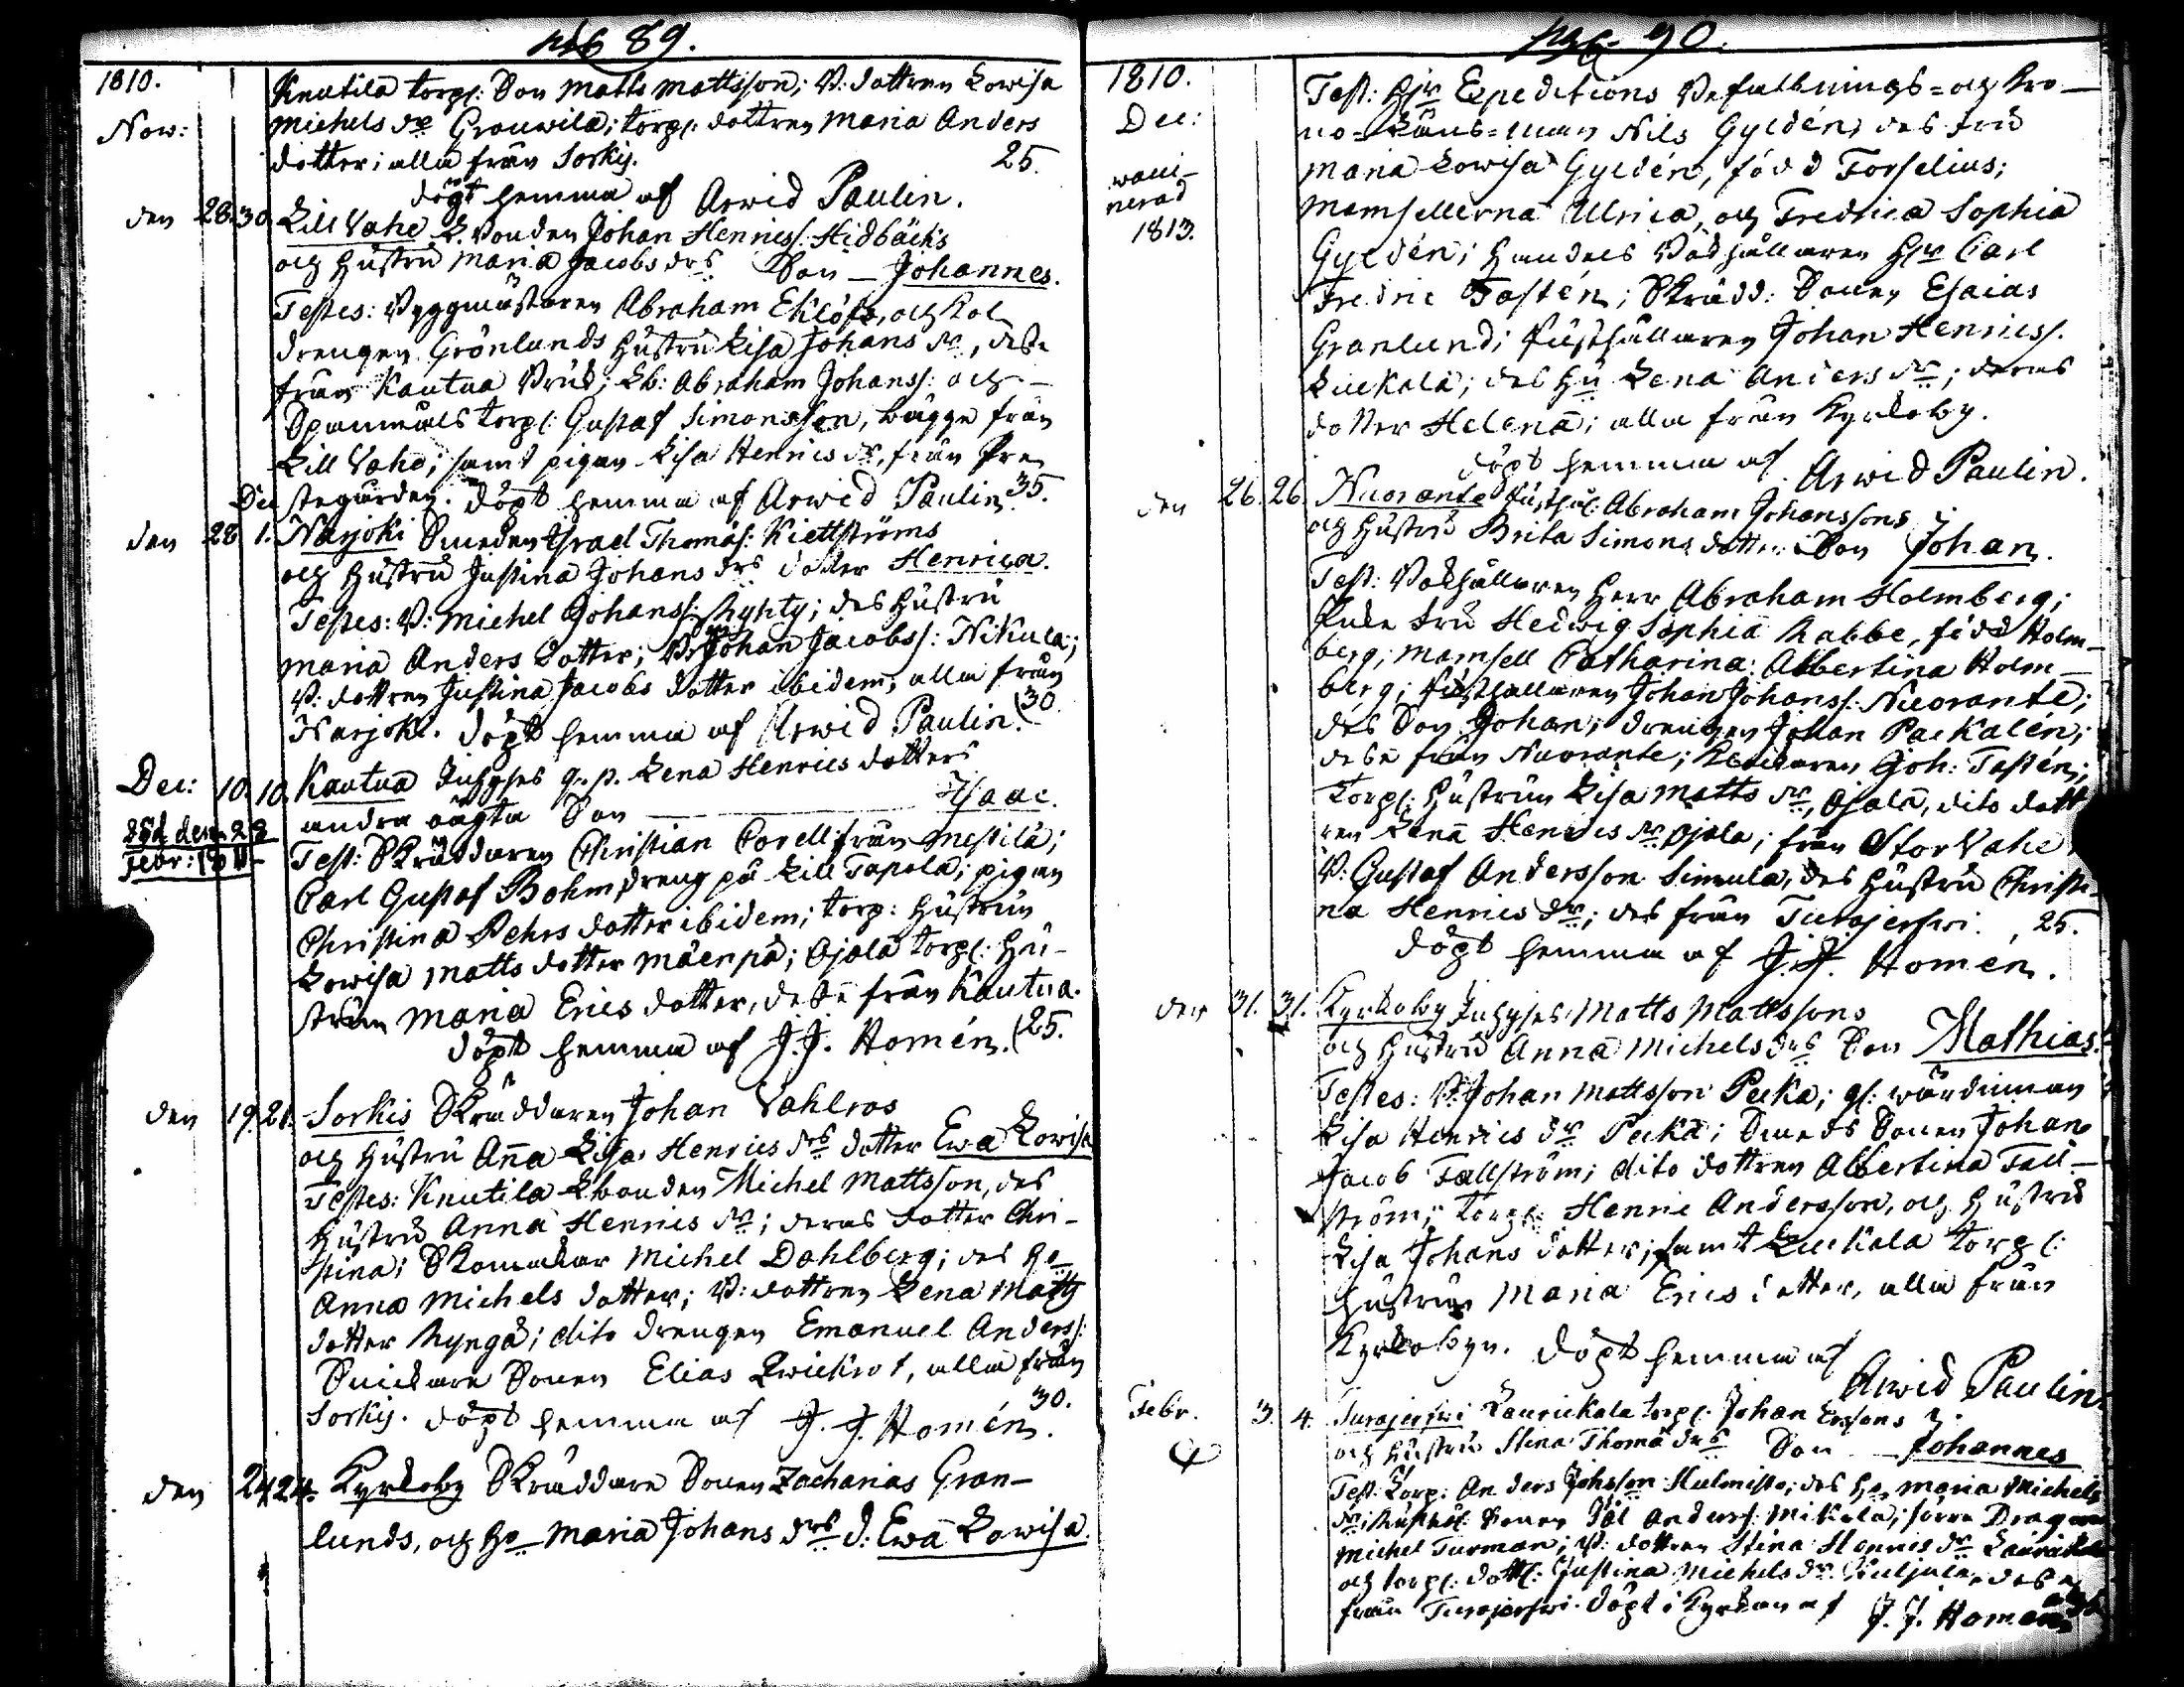 pag 89.
1810.
Now:
Knutila torp: Son Matts Mattsson; B: dottren Lowisa
Michels dr Grouwila; torp: dottren Maria Anders
dotter; alla från Sorkis. 25.
döpt hemma af Arwid Paulin.
den 28. 30. Lill Vahe L. Bonden Johan Henricss: Hidbäcks
och Hustru Maria Jacobs drs Son — Johannes.
Testes: Byggmästaren Abraham Eklöf, och Kol
drengen Grönlunds Hustru Lisa Johans dr, desse
från Kautua Bruk; Lb: Abraham Johanss: och
Spanmåls torp: Gustaf Simonsson, bägge från
Lill Vahe; samt pigan Lisa Henrics dr, från Pre
stegården. döpt hemma af Arwid Paulin. 35.
Dec
den 28 1. Narjoki Smeden Israel Thomæs: Kiettströms
och Hustru Justina Johans drs dotter Henrica.
Testes: B: Michel Johanss: Ryhty; des Hustru
Maria Anders dotter; Johan Jacobss: Nikula;
B: dottren Justina Jacobs dotter ibidem, alla från
Narjoki. döpt hemma af Arwid Paulin. (30.
Dec: 10. 10. Kautua Inhyses q. p. Lena Henrics dotters
andra oägta Son — Isaac.
död den 28
Febr: 1811
Test: Skräddaren Christian Corell från Mestilä;
Carl Gustaf Bohm, dreng på Lill Tapola; pigan
Christina Pehrs dotter ibidem; torp: Hustrun
Lowisa Matts dotter Mäenpä; Ojala torp: Hu-
strun Maria Erics dotter, desse från Kautua.
döpt hemma af J. J. Homén. (25.
den 19. 21. Sorkis Skräddaren Johan Vahlros
och Hustru Anna Lisa Henrics drs dotter Ewa Lowisa
Testes: Knutila Lbonden Michel Mattsson, des
Hustru Anna Henrics dr; deras dotter Chri-
stina; Skomakar Michel Dahlberg; des Hu
Anna Michels dotter; B: dottren Lena Matts
dotter Rynga; dito drengen Emanuel Anderss:
Snickare Sonen Elias Qwickrot, alla från
Sorkis. döpt hemma af J. J. Homén. 30.
den 24 24. Kyrkoby Skräddare Sonen Zacharias Gran-
lunds, och Hu Maria Johans drs d: Ewa Lowisa.
pag. 90.
1810.
Dec:
1813.
Test: Hr Expeditions Befallnings- och Kro-
no-Läns-man Nils Gyldén, des Fru
Maria Lowisa Gyldén, född Forselius;
Mamsellerna Ulrica, och Fredrica Sophia
Gyldén; Handels Bokhållaren Hr Carl
Fredric Tastén; Skrädd: Sonen Esaias
Granlund; Rusthållaren Johan Henricss.
Luukala; des Hu Lena Anders dr; deras
dotter Helena; alla från Kyrkoby.
döpt hemma af Arwid Paulin.
den 26. 26. Nuorante Rusthål: Abraham Johanssons
och Hustru Brita Simons dotter: Son Johan.
Test: Bokhållaren Herr Abraham Holmberg;
Enke Fru Hedwig Sophia Rabbe, född Holm-
berg; Mamsell Catharina Albertina Holm-
berg; Rusthållaren Johan Johanss: Nuorante;
des Son Johan; drengen Johan Packalén;
desse från Nuorante; Joh: Tastén;
torp: Hustrun Lisa Matts dr, Ojala, dito dott
ren Lena Henrics dr Ojala; från Stor Vahe
B: Gustaf Andersson Simula, des Hustru Christi-
na Henrics dr; des från Turajerfwi. 25.
döpt hemma af J. J. Homén.
den 31. 31. Kyrkoby Inhyses: Matts Mattssons
och Hustru Anna Michels drs Son Mathias.
Testes: B: Johan Mattsson Pecka; gl: wärdinnan
Lisa Henrics dr Pecka; Smeds Sonen Johan
Jacob Fallström; dito dottren Albertina Fall-
ström; torp: Henric Andersson, och Hustru
Lisa Johans dotter; samt Luukala torp:
Hustrun Maria Erics dotter, alla från
Kyrkobyn. döpt hemma af
Arwid Paulin.
Febr. 3. 4. Turajerfwi Laurickala torp: Johan Erssons
och Hustru Stina Thomæ drs Son — Johannes
Test: torp: Anders Johsson Hulmisto; des Hu Maria Michels
dr; Rusthål: Sonen Joel Anderss: Mikola; förre Dragon
Michel Turman; B: dottren Stina Henrics dr Lauricka
och torp: dott: Justina Michels dr desse
från Turajerfwi. döpt i Kyrkan af J. J. Homén